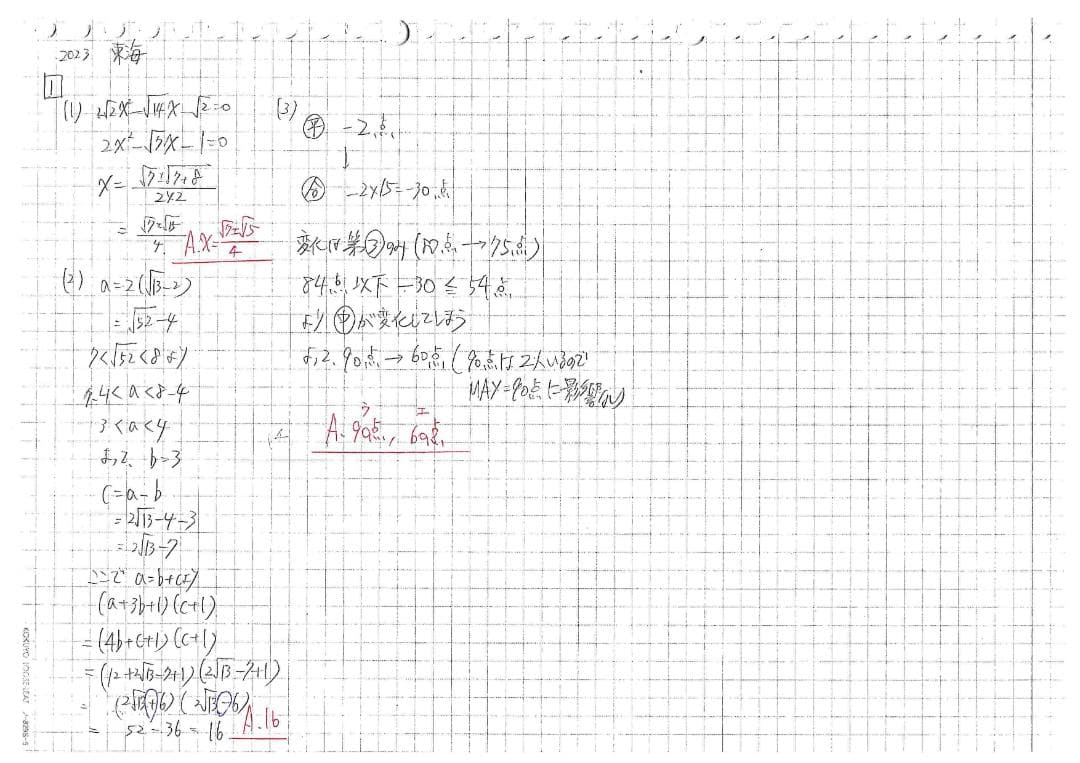 2023 東海
1
(1) 2√2x²-√14x-√2=0
2x²-√7x-1=0
x= √7±√7+8 / 2×2
= √7±√15 / 4
A.x= √7±√15 / 4
(2) a=2(√13-2)
=√52-4
7<√52<8より
7-4<a<8-4
3<a<4
よって、b=3
c=a-b
=2√13-4-3
=2√13-7
ここで a=b+cより
(a+3b+1)(c+1)
=(4b+c+1)(c+1)
=(12+2√13-7+1)(2√13-7+1)
= (2√13+6)(2√13-6)
= 52-36=16
A.16
(3)
平 -2点
↓
合 -2×15=-30点
変化は第③のみ( 点→75点)
84点以下-30≦54点
より 中が変化してしまう
よって、90点→60点(90点は2人いるので
MAX=90点に影響 )
ウ エ
A. 90点, 60点
KOKUYO LOOSE-LEAF